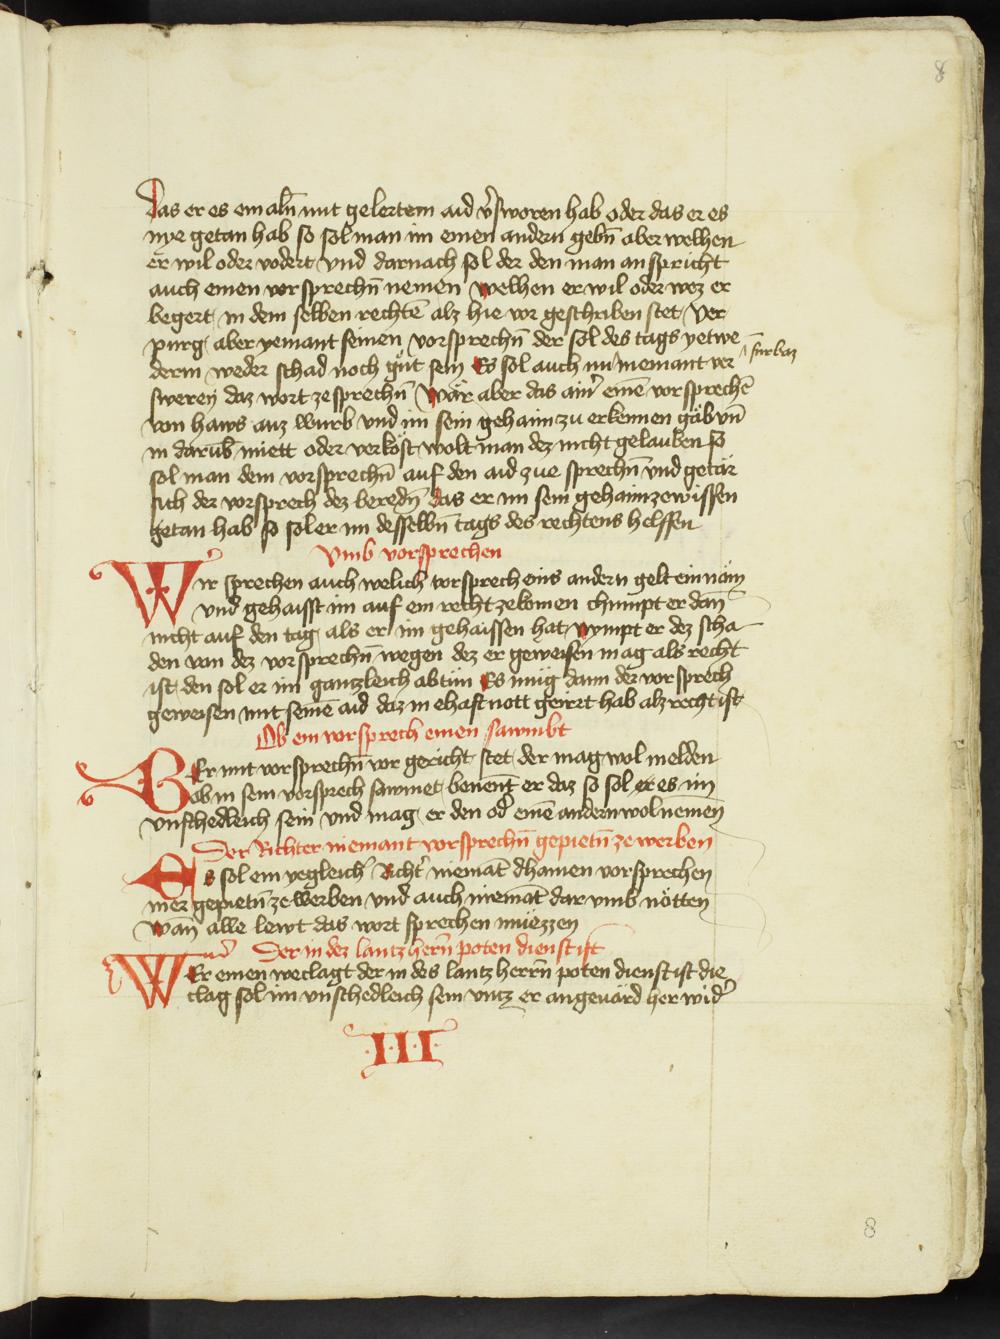 8
Das er es emaln̄ mit gelertem aid v̓sworen hab oder das er es
nye getan hab so sol man im einen andern gebn̄ aber welhen
er wil oder vodert vnd darnach sol der den man anspricht
auch einen vorsprechn̄ nemen welhen er wil oder wez er
begert in dem selben rechtē alz hie vor geschriben stet Ver
purg aber yemant seinen vorsprechn̄ der sol des tags yetwe
derm weder schad noch gůt sein Es sol auch nu niemant ver
fürbaz
sweren daz wort ze sprechn̄ Wär aber das ain̓ einē vorsprechē
von haws auz wurb vnd im sein gehaim zu erkennen gäb vn̄
in darub̄ miett oder verköst wolt man dez nicht gelauben so
sol man dem vorsprechn̄ auf den aid zue sprechn̄ vnd getär
sich der vorsprech dez beredn̄ das er im sein gehaim ze wissen
getan hab so sol er im desselbn̄ tags des rechtens helffen
Vmb vorsprechen
Wir sprechen auch welich vorsprech eins andern gelt ein näm
vnd gehaisst im auf ein recht ze komen chumpt er dan̄
nicht auf den tag als er im gehaissen hat nympt er dez scha
den von dez vorsprechn̄ wegen dez er geweisen mag als recht
ist den sol er im gantzleich abtun Es müg dann der vorsprech
geweisen mit seinē aid daz in ehaft nott geirrt hab alz recht ist
Ob ein vorsprech einen sawmbt
Wer mit vorsprechn̄ vor gericht stet der mag wol melden
ob in sein vorsprech sawmet benent er daz so sol er es im
vnschedleich sein vnd mag er den od̓ einē andern wol nemen
Der Richter niemant vorsprechn̄ gepietn̄ ze werben
Es sol ein yegleich̓ Richt̓ niemāt dhainen vorsprechen
mer gepietn̄ ze werben vnd auch niemāt dar vmb nötten
wan̄ alle lewt das wort sprechen müezzen
Der in dez lantzherrn̄ poten dienst ist
Wer einen weclagt der in des lantzherrn̄ poten dienst ist die
clag sol im vnschedleich sein vntz er angeuärd her wid̓
·III·
8